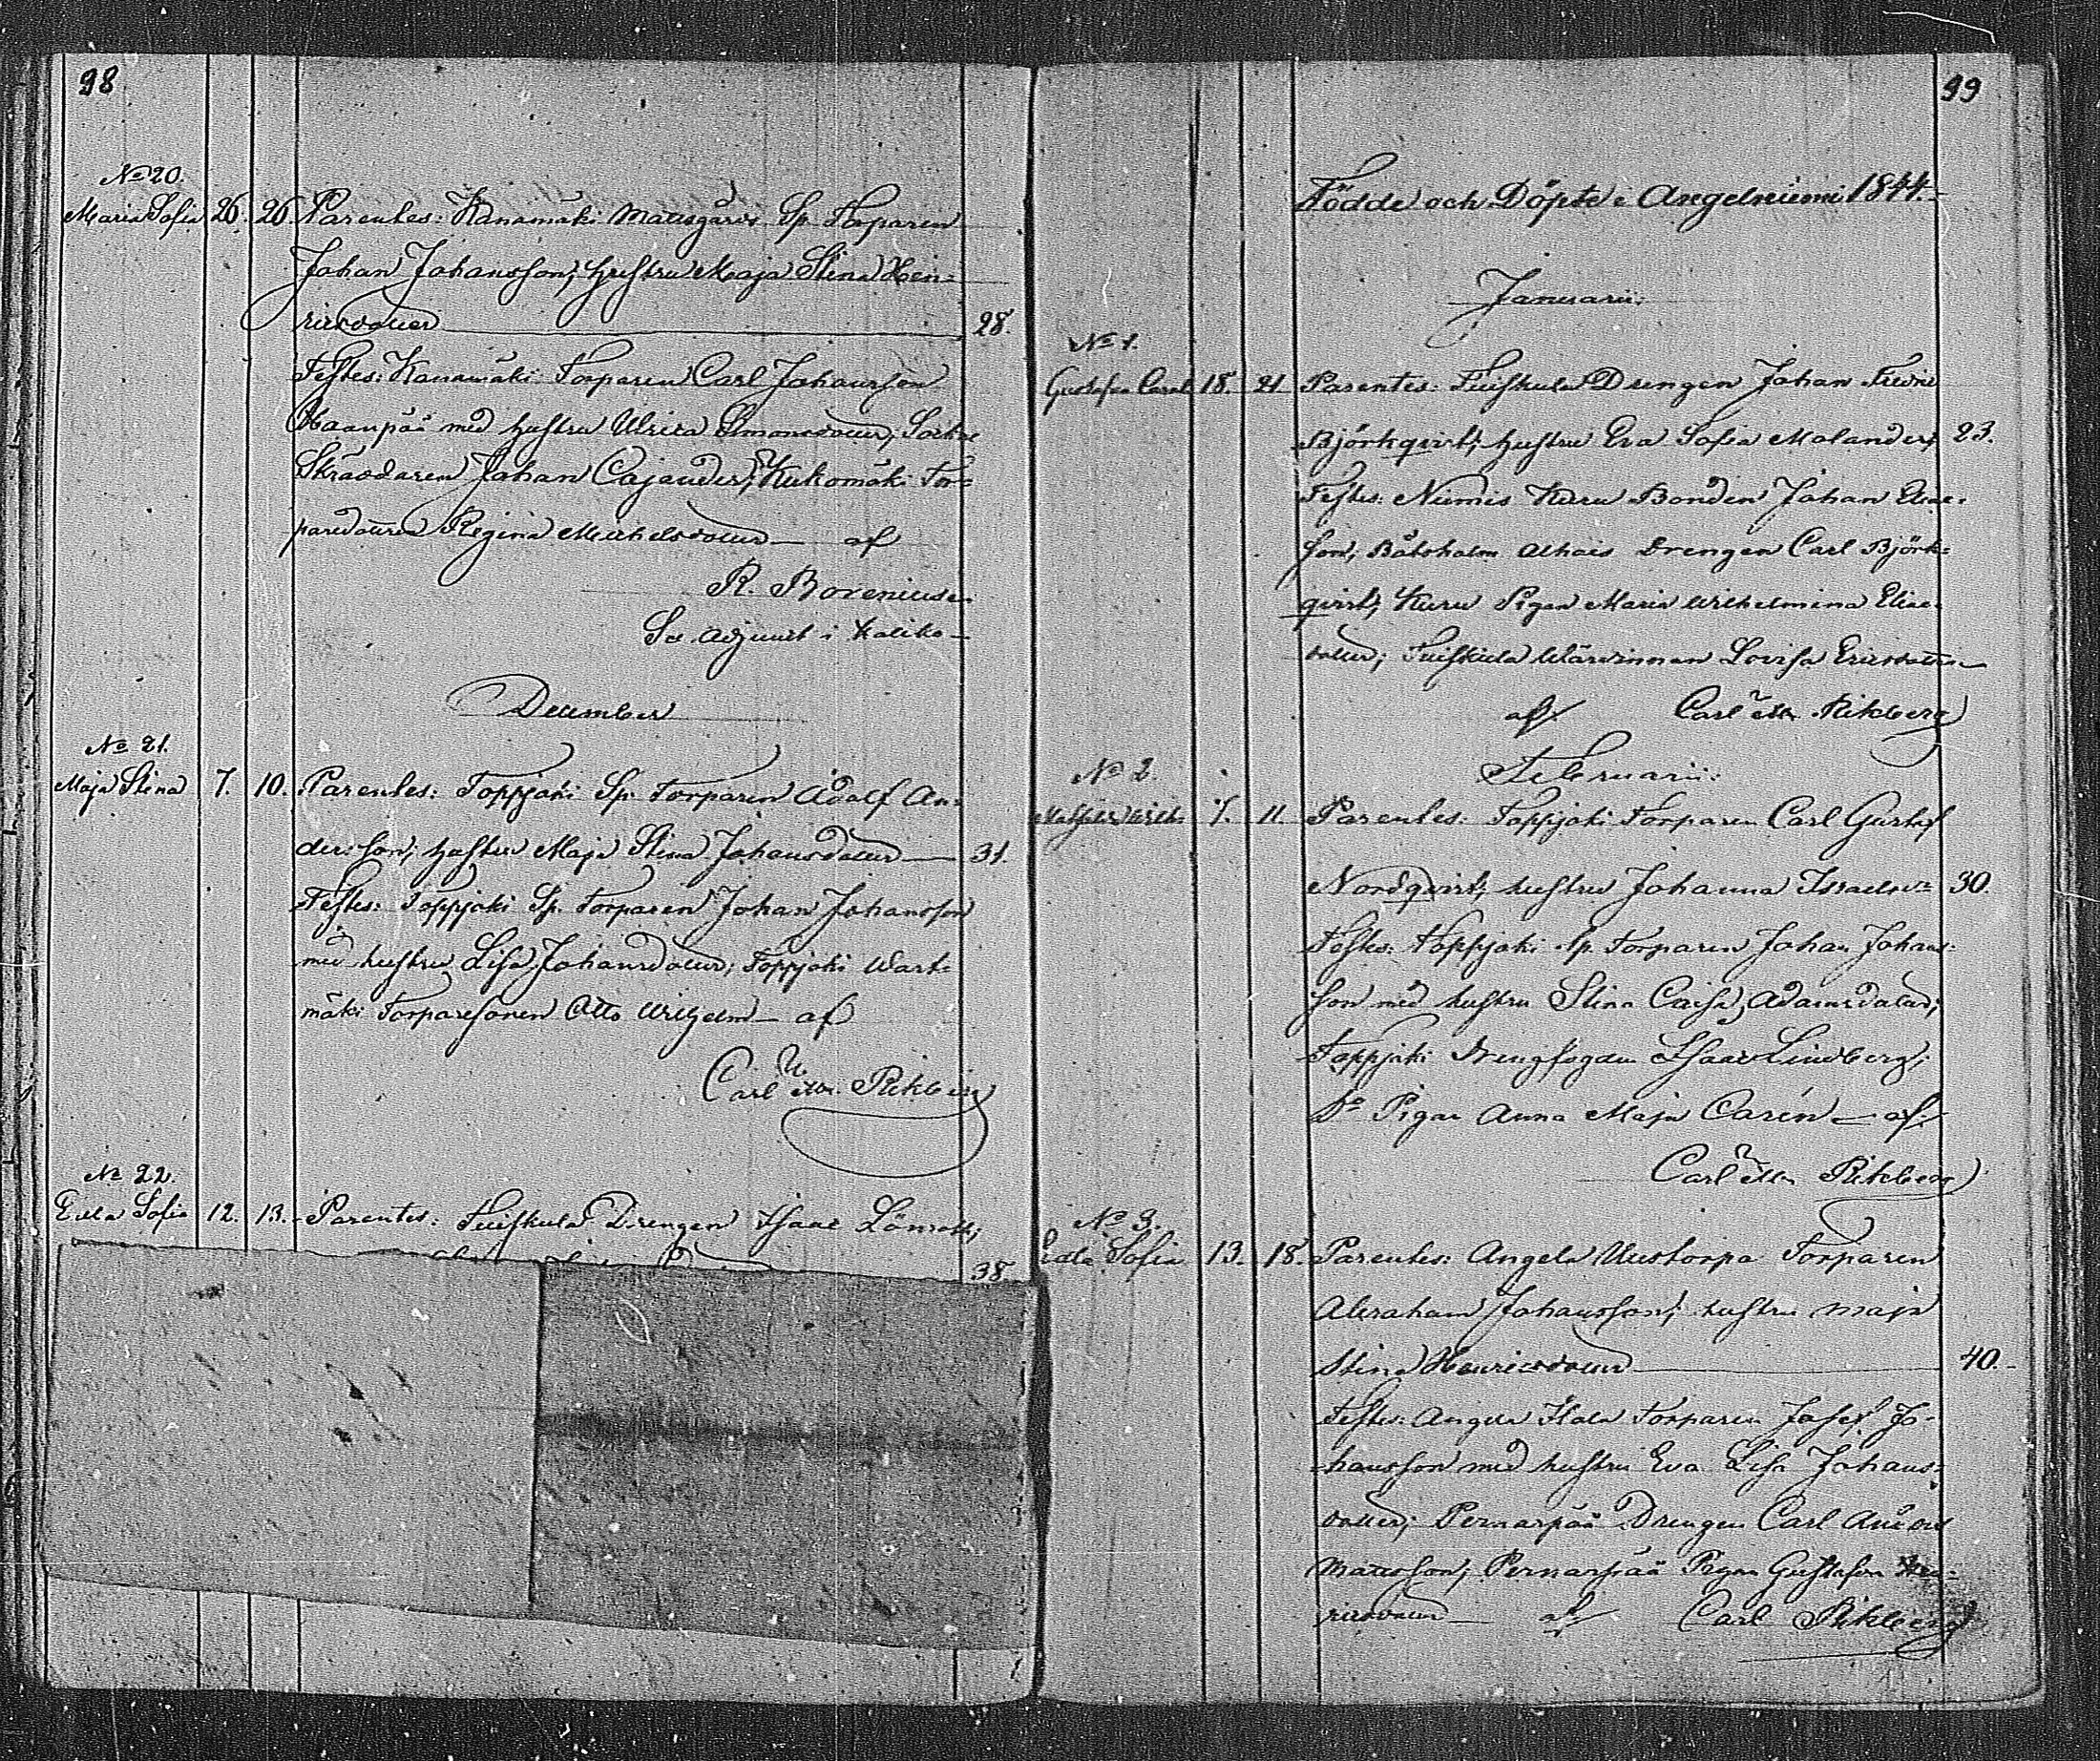 98
No 20.
Maria Sofia 26. 26. Parentes: Kanamäki Mattsgårds Sp. Torparen
Johan Johansson, hustru Maja Stina Hen=
ricsdotter 28.
Testes: Kanamäki Torparen Carl Johansson
Haanpää med hustru Ulrica Simonsdotter, Sockne
Skräddaren Johan Cajander, Kukomäki Tor=
paredottren Regina Michelsdotter — af
R. Borenius
Sv. Adjunct i Halikko
December
No 21.
Maja Stina 7. 10. Parentes: Toppjoki Sp. Torparen Adolf An=
ders son, hustru Maja Stina Johansdotter 31.
Testes: Toppjoki Sp. Torparen Johan Johansson
med hustru Lisa Johansdotter; Toppjoki Wart=
mäki Torparesonen Otto Wilhelm — af
Carl Mr. Rikberg
No 22.
Edla Sofia 12. 13. Parentes: Tuiskula Drengen Isaac Lönroth;
38.
99
Födde och Döpte i Angelniemi 1844.
Januarii.
No 1.
Gustafva Carol. 18. 21. Parentes: Tuiskula Drengen Johan Fredric
Björkqvist; hustru Eva Sofia Malander; 23.
Testes: Niemis Kuru Bonden Johan Elias=
son, Båtsholm Drengen Carl Björk=
qvist; Kuru Pigan Maria Wilhelmina Elias=
dotter; Tuiskula Wärdinnan Lovisa Ericsdotter —
af Carl Mr. Rikberg
Februarii.
No 2.
7. 11. Parentes: Toppjoki Torparen Carl Gustaf
Nordqvist; hustru Johanna Israelsdr 30.
Testes: Toppjoki Sp. Torparen Johan Johans=
son med hustru Stina Caisa Adamsdotter;
Toppjoki Drengfogden Isaac Lindberg;
Do Pigan Anna Maja Carén — af
Carl Mr. Rikberg
No 3.
Edla Sofia 13. 18. Parentes: Angela Uustorpa Torparen
Abraham Johansson; hustru Maja
Stina Henricsdotter 40.
Testes: Angela Torparen Josef Jo=
hansson med hustru Eva Lisa Johans=
dotter; Pernarpää Drengen Carl Anton
Mattsson; Pernarpää Pigan Gustafva Hen=
ricsdotter — af Carl Rikberg